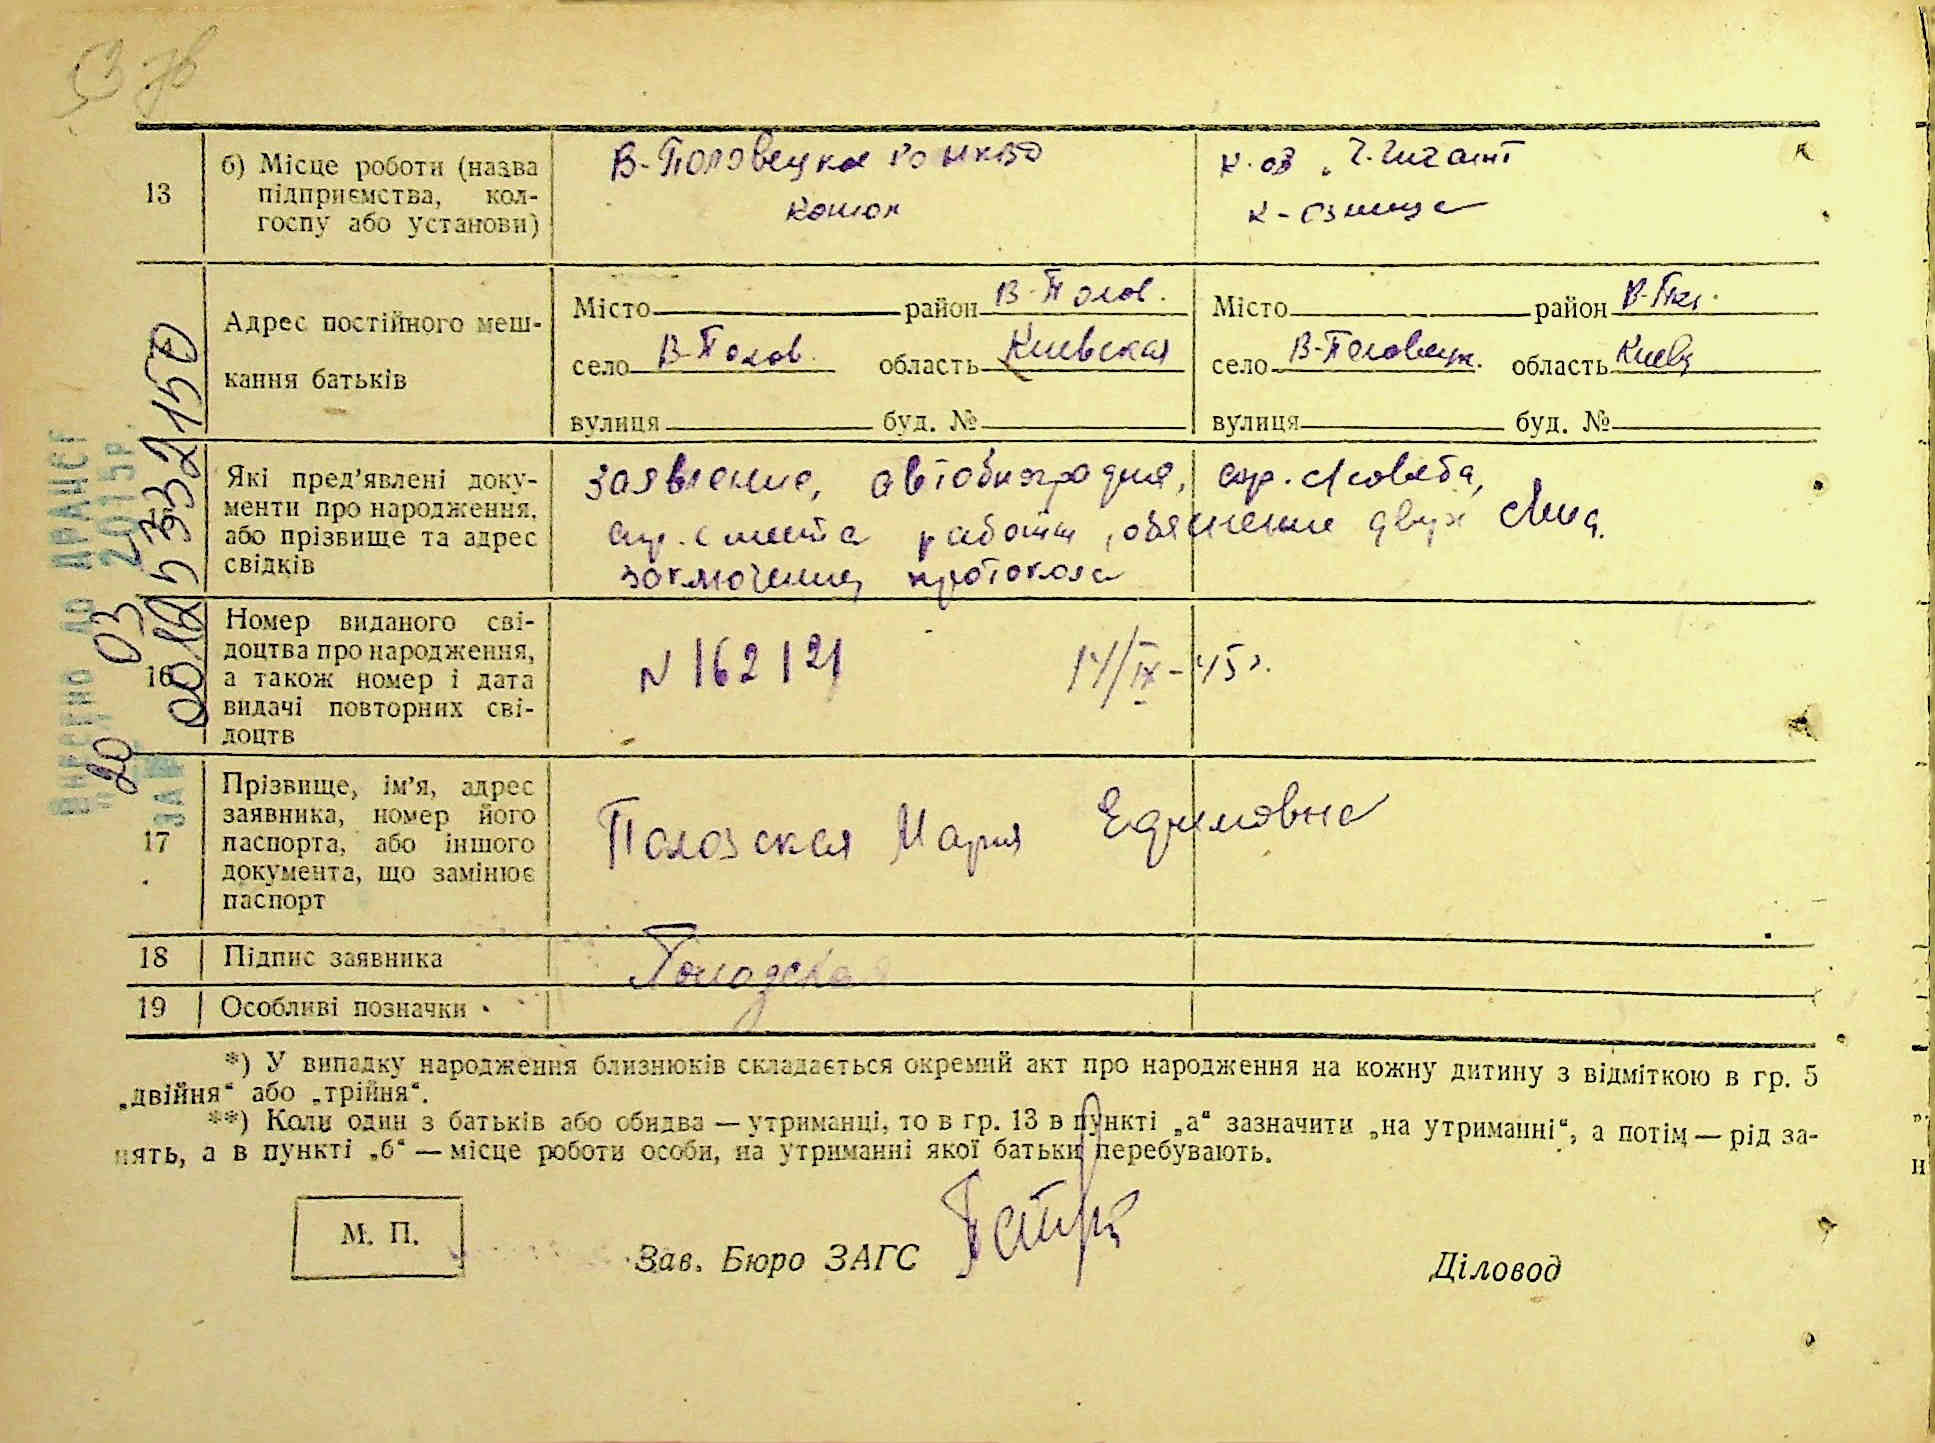 13
б) Місце роботи (назва підприємства, колгоспу або установи)
В-Половецкое РО НКВД
конюх
к-оз „Гигант
к-озница
Адрес постійного мешкання батьків
Місто район В-Полов.
село В-Полов. область Киевская
вулиця буд. №
Місто район В-Пол.
село В-Половецк. область Киевс
вулиця буд. №
Які пред'явлені документи про народження, або прізвище та адрес свідків
заявление, автобиография, спр. с/совета,
спр. с места работы, обяснение двух лиц.
заключение, протокола
16
Номер виданого свідоцтва про народження, а також номер і дата видачі повторних свідоцтв
N 162121 14/IX-45 г.
17
Прізвище, ім'я, адрес заявника, номер його паспорта, або іншого документа, що замінює паспорт
Мария Ефимовна
18 Підпис заявника
19 Особливі позначки
*) У випадку народження близнюків складається окремий акт про народження на кожну дитину з відміткою в гр. 5
„двійня“ або „трійня“.
**) Коли один з батьків або обидва — утриманці, то в гр. 13 в пункті „а“ зазначити „на утриманні“, а потім — рід за-
нять, а в пункті „б“ — місце роботи особи, на утриманні якої батьки перебувають.
М. П.
Зав. Бюро ЗАГС
Діловод
ВНЕСЕНО ДО ДРАЦСГ
20 03 2015р.